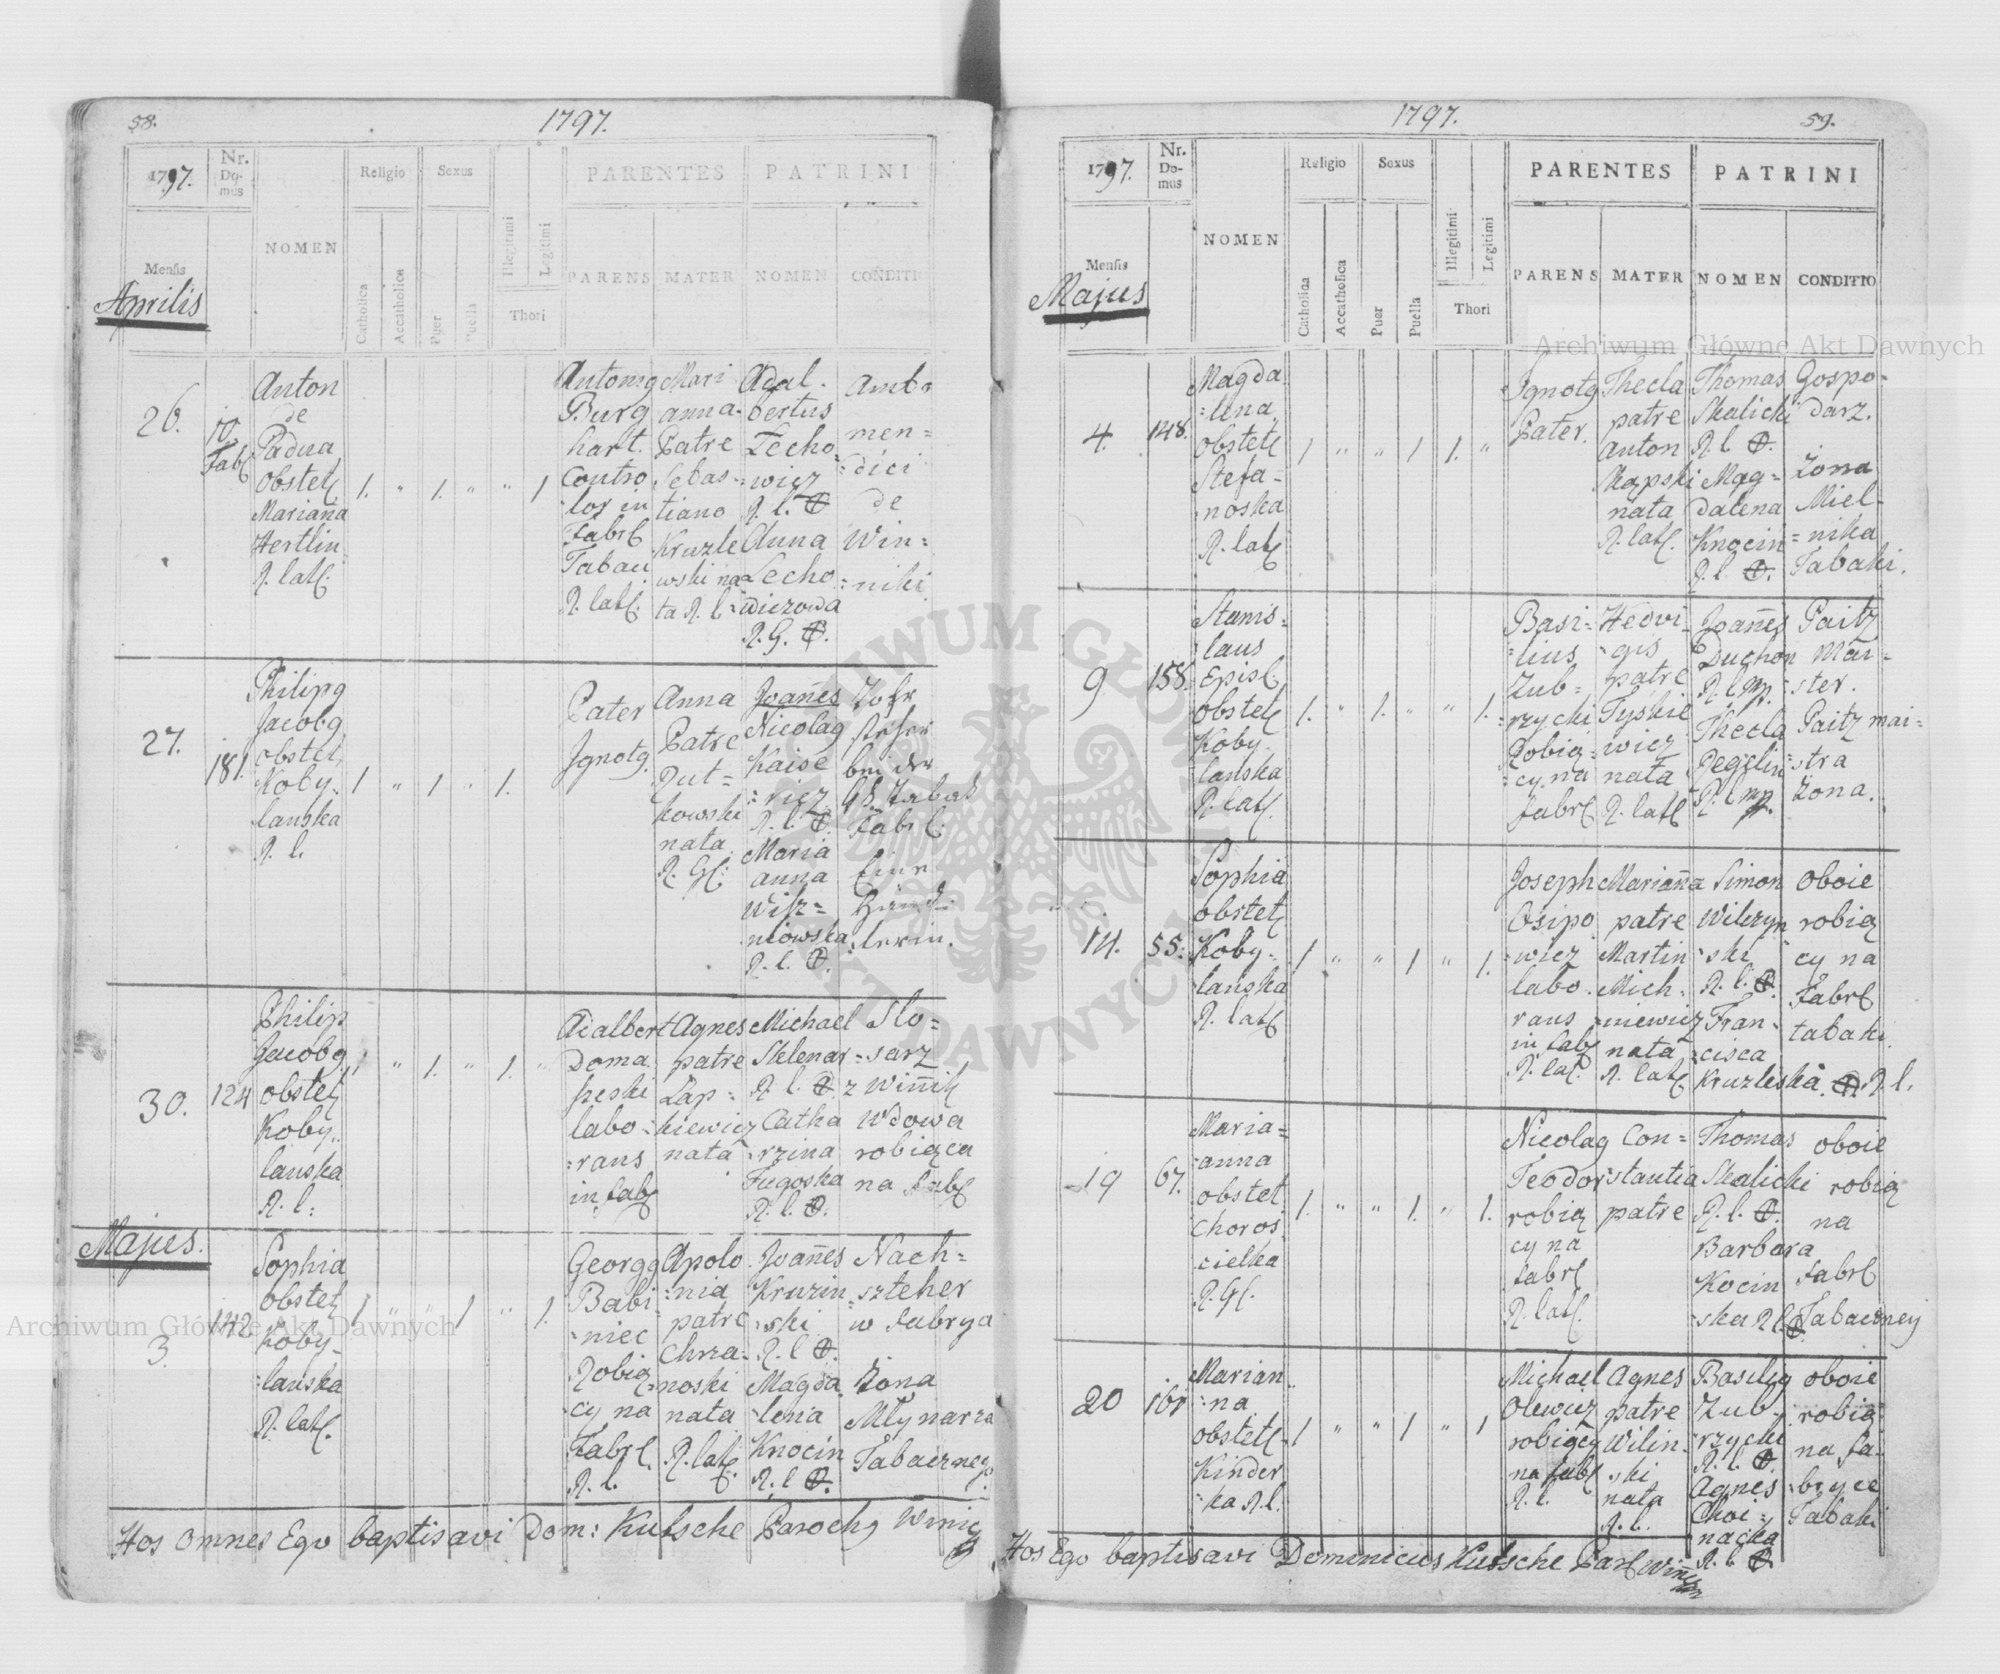 58.
1797.
1797.
Nr. Domus
NOMEN
Religio
Sexus
PARENTES
PATRINI
Mensis
Aprilis
Catholica
Accatholica
Puer
Puella
Illegitimi
Legitimi
Thori
PARENS
MATER
NOMEN
CONDITI
26.
10. Fab
Anton
de
Padua
obstet
Marianna
Hertlin
R. lat.
1. " 1. " " 1
Antonig
Burg
hart.
Contro
lor in
Fabr
Tabac
R. lat.
Mari
anna
Patre
Sebas=
tiano
Kruzle
wski na
ta R. l.
Adal.
bertus
Lecho
=wicz
R. l.
Anna
Lecho
=wiczowa
R. G.
Ambo
men=
=dici
de
Win=
=niki
27.
181.
Philipg
Jacobg
obstet
Koby=
lanska
R. l.
1 " 1 " 1.
Pater
Ignotg.
Anna
Patre
Rut=
kowski
nata
R. G.
Joannes
Nicolag
Kaise
=ricz
R. l.
Maria
anna
Wisz=
niowska
R. l.
bei der
Tabak
Fabr.
=lerin.
30.
124
Philip
Jacobg
obstet
Koby=
lanska
R. l.
1 " 1. " 1. "
Adalbert
Doma
szeski
labo=
=rans
in fab
Agnes
patre
Lap=
kiewicz
nata
Michael
Sklenar
R. l.
Catha
=rzina
Fugoska
R. l.
Slo=
=sarz
z Winnik
Wdowa
robiąca
na fab
Majus.
3.
142
Sophia
obstet
Koby=
=lanska
R. lat.
1 " " 1 " 1.
Georgg
Babi=
=niec
Robią=
cy na
Fabr.
R. l.
Apolo
=nia
patre
Chrza=
noski
nata
R. lat.
Joannes
Kruzin
=ski
R. l.
Magda
=lena
Knocin
R. l.
Nach=
=szteher
w Fabryc
Zona
Młynarza
Tabacznego
Hos omnes Ego baptisavi Dom: Kutsche Parochg Winic
1797.
59.
1797.
Nr. Domus
NOMEN
Religio
Sexus
PARENTES
PATRINI
Mensis
Majus
Catholica
Accatholica
Puer
Puella
Illegitimi
Legitimi
Thori
PARENS
MATER
NOMEN
CONDITIO
4.
148.
Magda
=lena
obstet
Stefa=
noska
R. lat
1 " " 1 1. "
Ignotg
Pater.
Thecla
patre
Anton
nata
R. lat.
Thomas
Skalicki
R. l.
Mag=
dalena
Knocin
R. l.
Gospo=
darz.
Zona
Miel=
=nika
Tabaki.
9
158.
Stanis=
laus
Epis.
obstet
Koby=
lanska
R. lat.
1. " 1. " " 1.
Basi=
lius
Zub=
rzycki
Robią=
cy na
fabr
Hedvi=
gis
patre
Tyskie
wicz
nata
R. lat
Joannes
Duchon
R. l. mp.
Thecla
Pegelin
R. l. mp.
Paitz
mai=
=ster.
Paitz mai=
=stra
żona.
14.
55.
Sophia
obstet
Koby=
lanska
R. lat
1 " " 1 " 1.
Joseph
Osipo
=wicz
labo
rans
in fab
R. lat.
Marianna
patre
Martin
Mich=
=niewicz
nata
R. lat
Simon
Wilczyn
=ski
R. l.
Fran=
cisca
Kruzleska R. l.
oboie
robią
cy na
Fabr
tabaki.
19
67.
Maria=
=anna
obstet
Choros
cielka
R. G.
1. " " 1. " 1.
Nicolag
Teodor
robią
cy na
fabr
R. lat.
Con=
=stantia
patre
Thomas
Skalicki
R. l.
Barbara
Kocin
ska R. l.
oboie
robią
na
fabr
Tabaczney
20
161
Marian
=na
obstet
Kinder
=ka R. l.
1 " " 1 " 1
Michael
Olewicz
robiący
na fab
R. l.
Agnes
patre
Wilin
ski
nata
R. l.
Basilig
Zub=
rzycki
R. l.
Agnes
Choi=
nacka
R. l.
oboie
robią
na fa=
bryce
Tabaki
Hos Ego baptisavi Dominicus Kutsche Par
Archiwum Główne Akt Dawnych
Archiwum Główne Akt Dawnych
ARCHIWUM GŁÓWNE AKT DAWNYCH